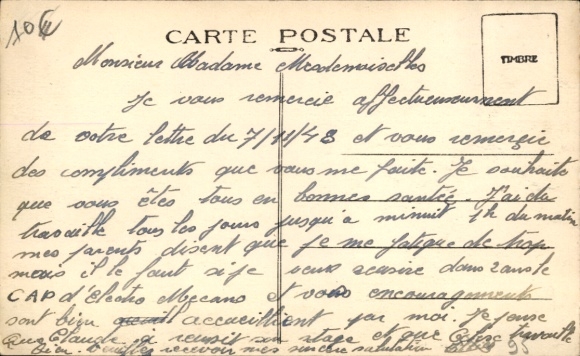 10€
CARTE POSTALE
TIMBRE
Monsieur Madame Mesdemoiselles
Je vous remercie affectueusement
de votre lettre du 7/11/48 et vous remercie
des compliments que vous me faite. Je souhaite
que vous êtes tous en bonnes santée. J'ai du
travaille tous les jours jusqu'a minuit 1h du matin
mes parents disent que je me fatigue de trop
mais il le faut si je veux dans 2 ans le
CAP d'Electro Mecano et vous encouragements
sont bien accueillient par moi. Je pense
que Claude a reussit son stage et que travaille
bien. recevoir mes sincère salutation